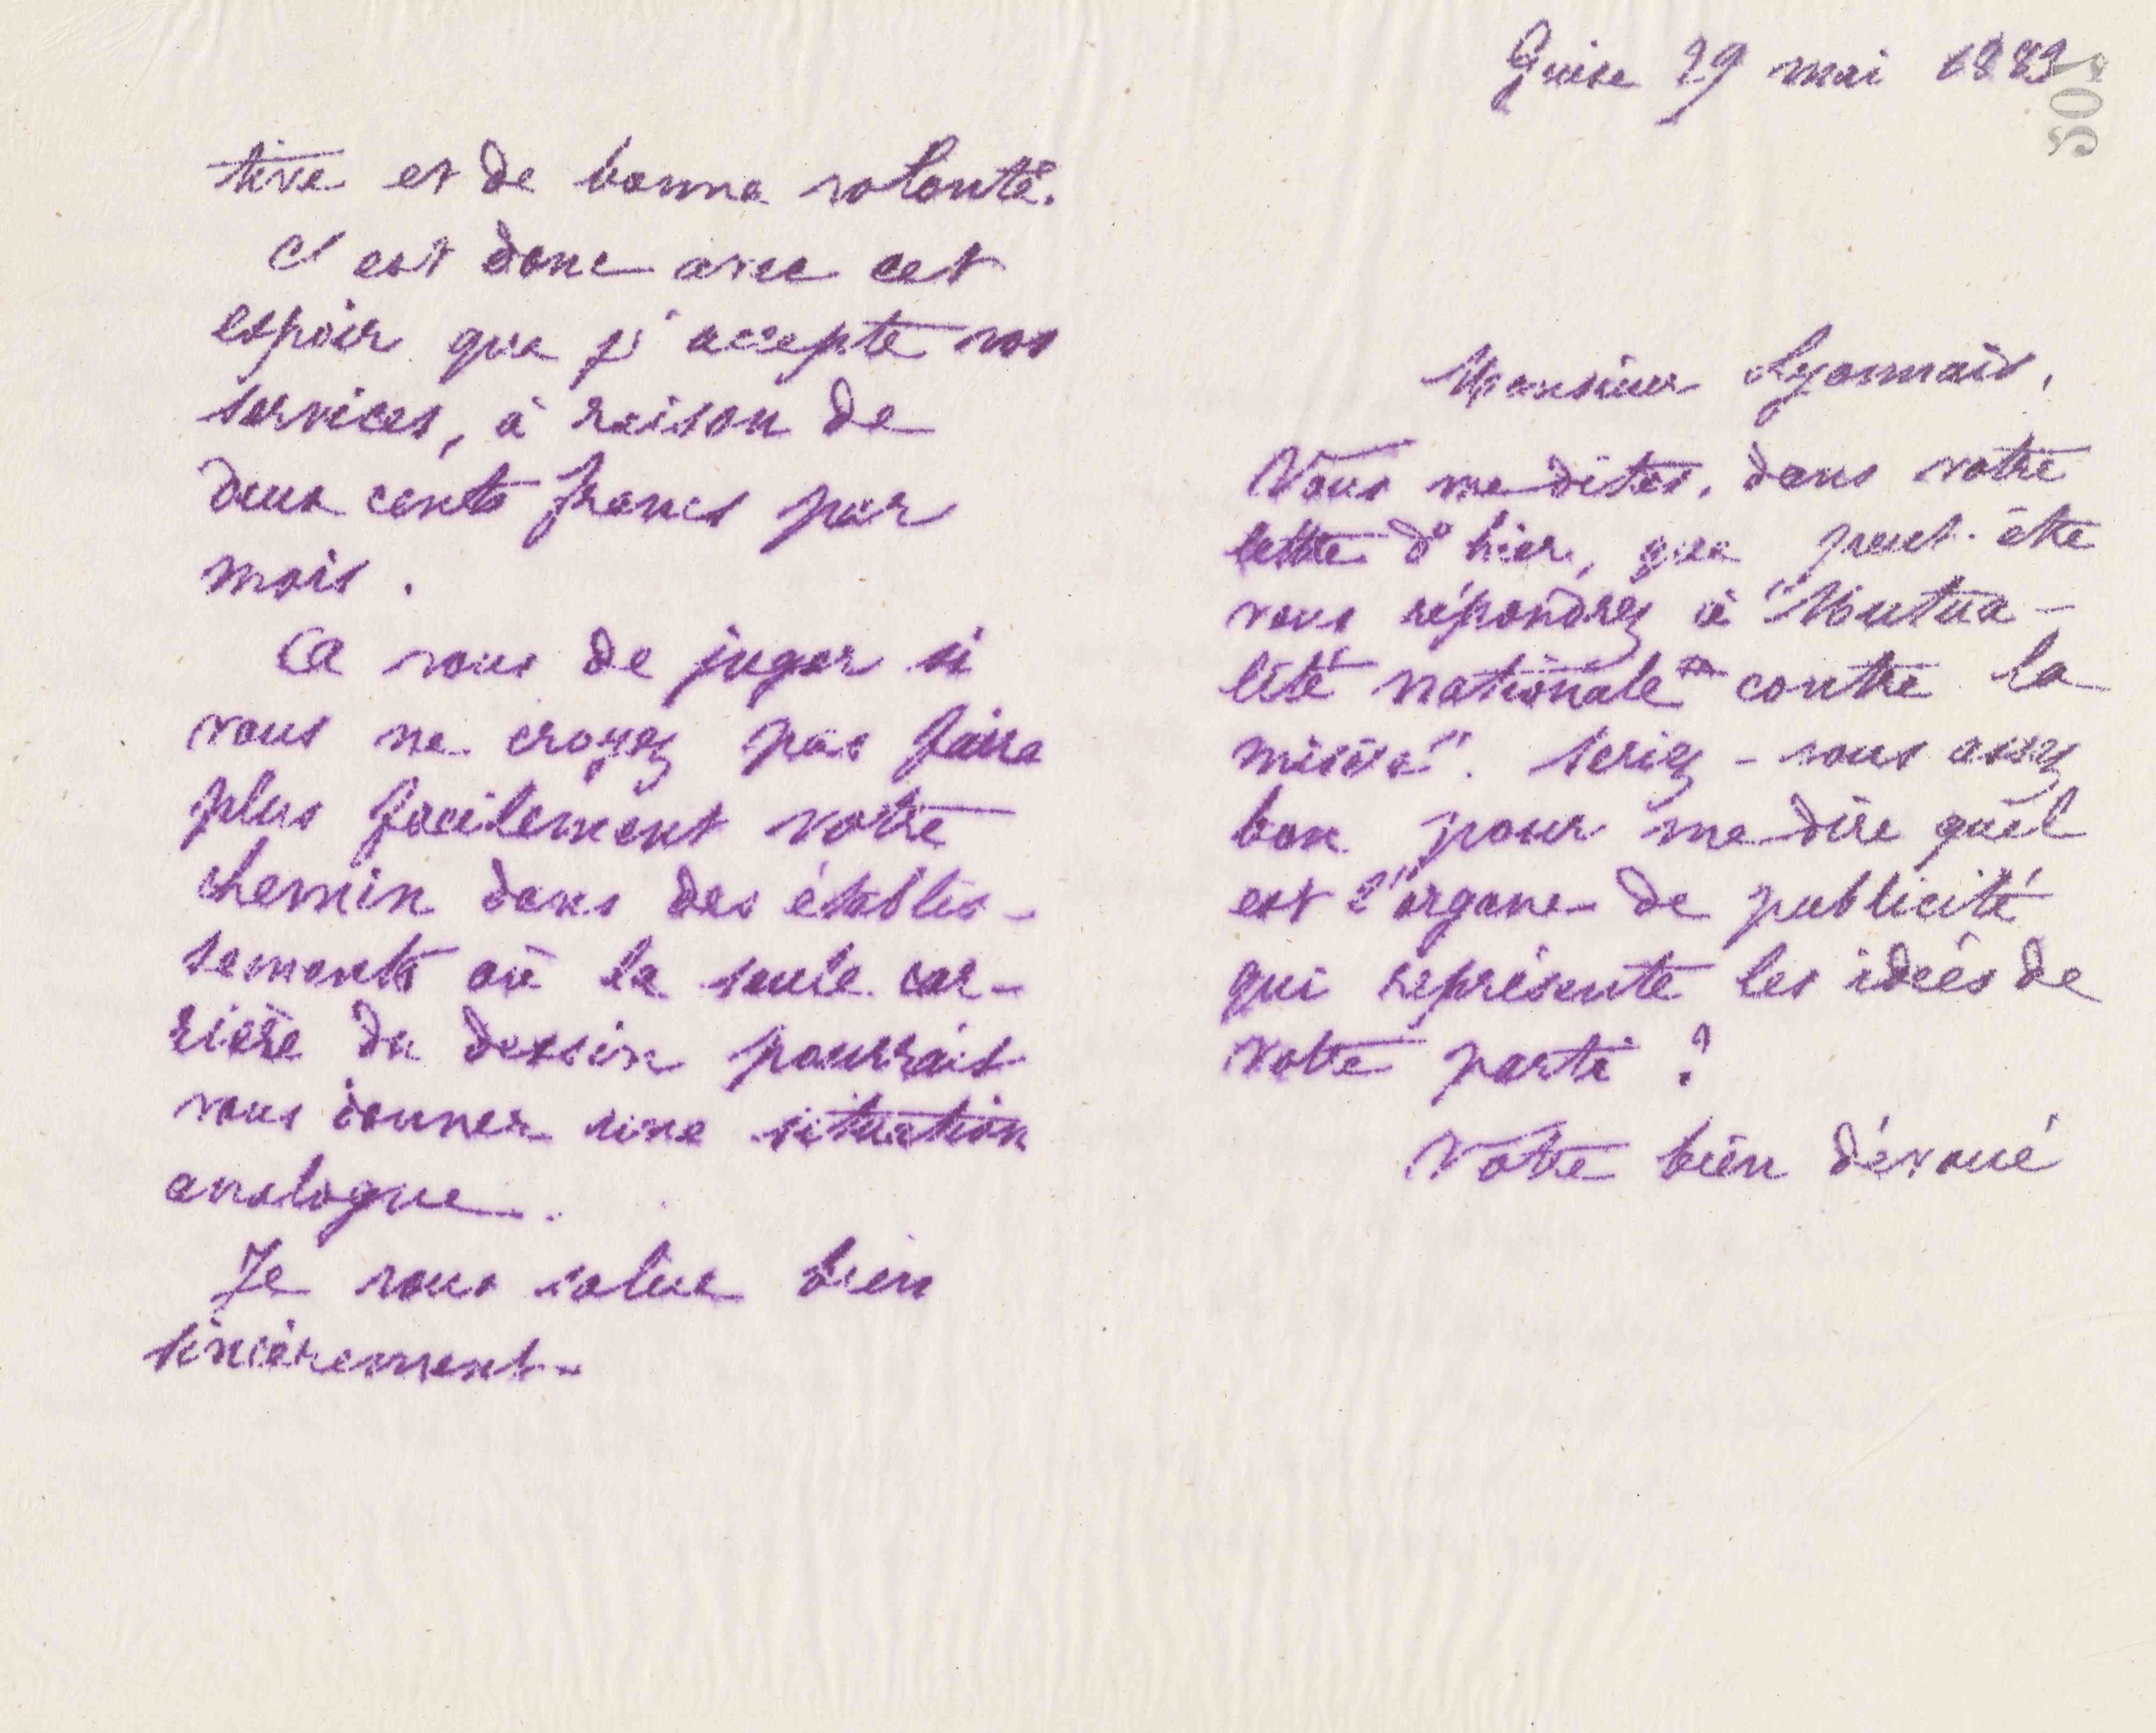 tive et de bonne volonté.
C'est donc avec cet
espoir que j'accepte vos
services, à raison de
deux cents francs par
mois.
A vous de juger si
vous ne croyez pas faire
plus facilement votre
chemin dans des établis-
sements où la seule car-
rière du dessin pourrait
vous donner une situation
analogue.
Je vous salue bien
sincèrement
Guise 29 mai 1883
505
Monsieur Lyonnais,
Vous me dites, dans votre
lettre d'hier, que peut-être
vous répondrez à "Mutua-
lité nationale contre la
misère". Seriez-vous assez
bon pour me dire quel
est l'organe de publicité
qui représente les idées de
votre parti ?
Votre bien dévoué